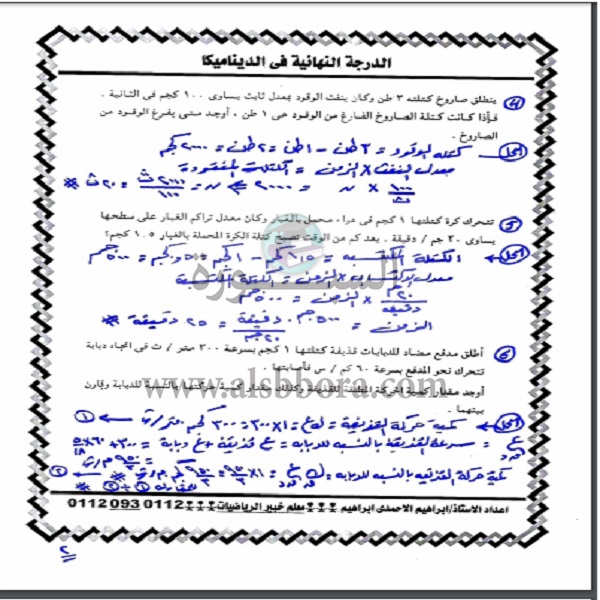 الدرجة النهائية فى الديناميكا
٤ ينطلق صاروخ كتلته ٣ طن وكان ينفث الوقود بمعدل ثابت يساوى ١٠٠ كجم فى الثانية .
فإذا كانت كتلة الصاروخ الفارغ من الوقود هى ١ طن ، أوجد متى يفرغ الوقود من
الصاروخ .
الحل كتله الوقود = ٣ طن - ١ طن = ٢ طن = ٢٠٠٠ كجم
معدل النفث × الزمن = الكتلة المفقودة
١٠٠/ث × ن = ٢٠٠٠ ⇐ ن = ٢٠٠٠ ث/١٠٠ = ٢٠ ث #
٥ تتحرك كرة كتلتها ١ كجم فى هواء محمل بالغبار وكان معدل تراكم الغبار على سطحها
يساوى ٢٠ جم / دقيقة . بعد كم من الوقت تصبح كتلة الكرة المحملة بالغبار ١.٥ كجم؟
الحل الكتلة المكتسبه = ١,٥ كجم - ١ كجم = ٥,. كجم = ٥٠٠ جم
معدل الاكتساب × الزمن = الكتلة المكتسبة
٢٠ جم/دقيقه × الزمن = ٥٠٠ جم
الزمن = ٥٠٠ جم . دقيقة/٢٠ جم = ٢٥ دقيقة #
٦ أطلق مدفع مضاد للدبابات قذيفة كتلتها ١ كجم بسرعة ٣٠٠ متر / ث فى اتجاه دبابة
تتحرك نحو المدفع بسرعة ٦٠ كم / س فأصابتها .
أوجد مقدار كمية الحركة المطلقة للقذيفة وكذلك مقدار كمية حركتها بالنسبة للدبابة وقارن
بينهما .
الحل كمية حركة القذيفة = ك ع = ١ × ٣٠٠ = ٣٠٠ كجم . متر/ث ← ١
= سرعة القذيفة بالنسبه للدبابه = ع قذيفة + ع دبابة = ٣٠٠ + ٦٠ × ٥/١٨
= ٩٥٠/٣ م/ث
كمية حركة القذيفه بالنسبه للدبابه = ك ع = ١ × ٩٥٠/٣ = ٩٥٠/٣ كجم . م/ث ← ٢
اعداد الاستاذ/ابراهيم الاحمدى ابراهيم معلم خبير الرياضيات 0112 093 0112
٢
السبورة
www.alsbbora.com